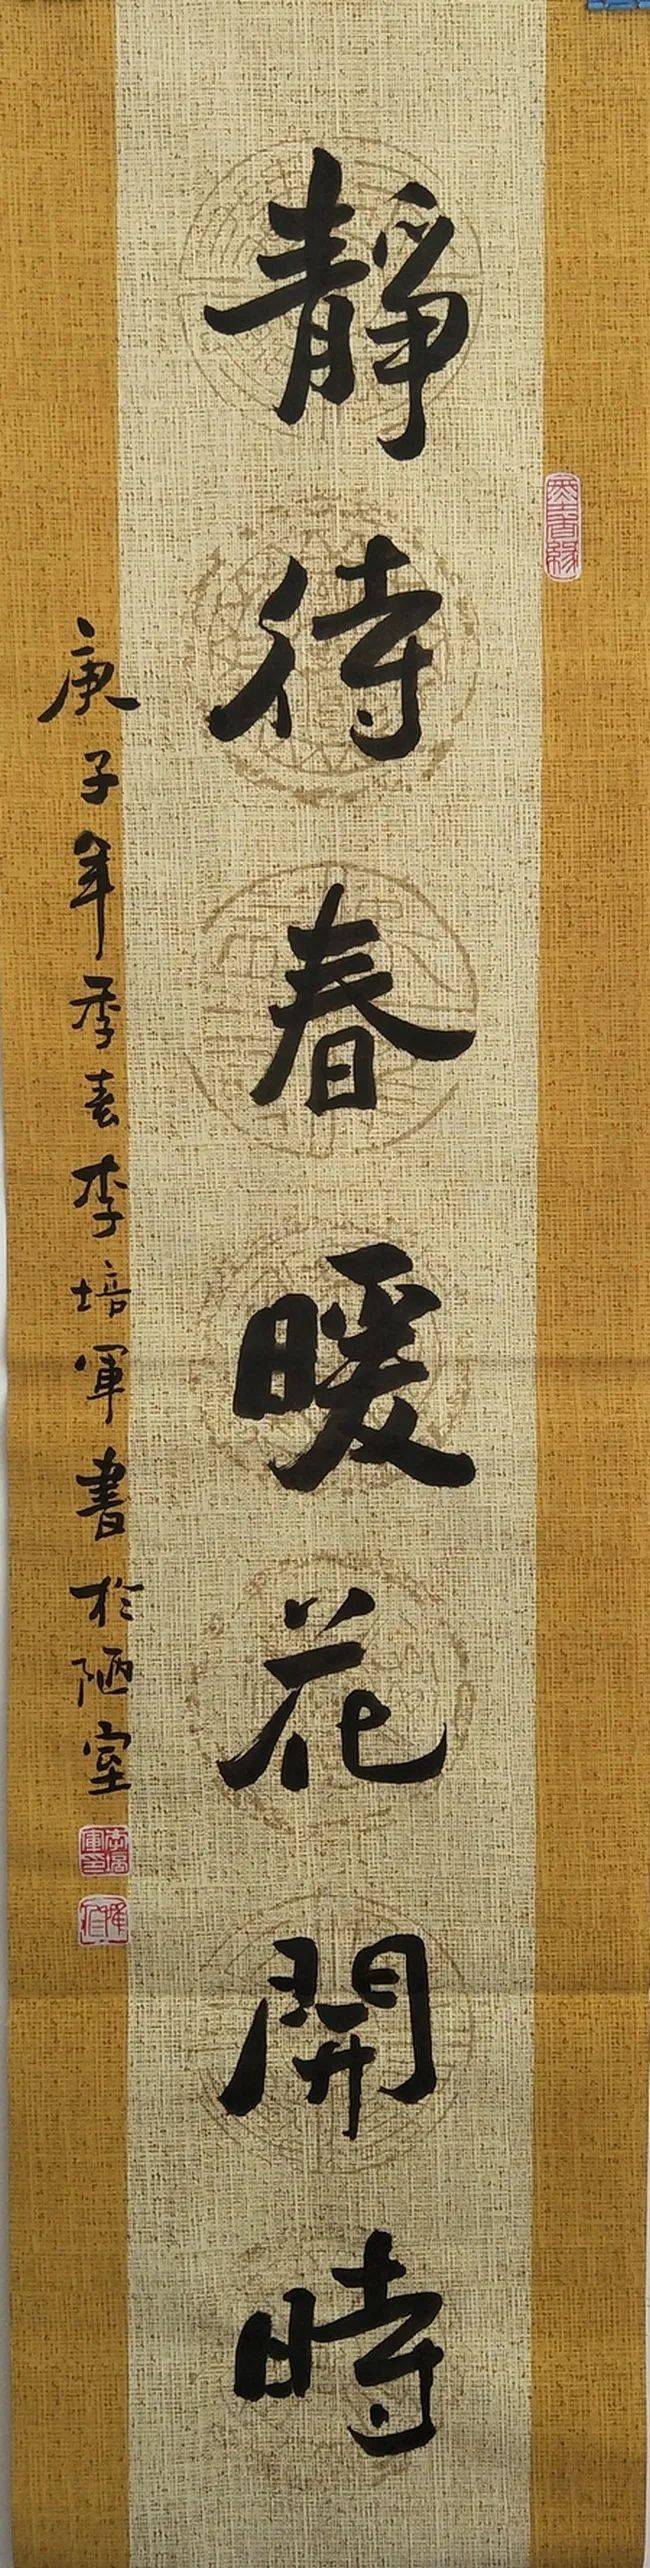 靜待春暖花開時
庚子年季春李培軍書於陋室